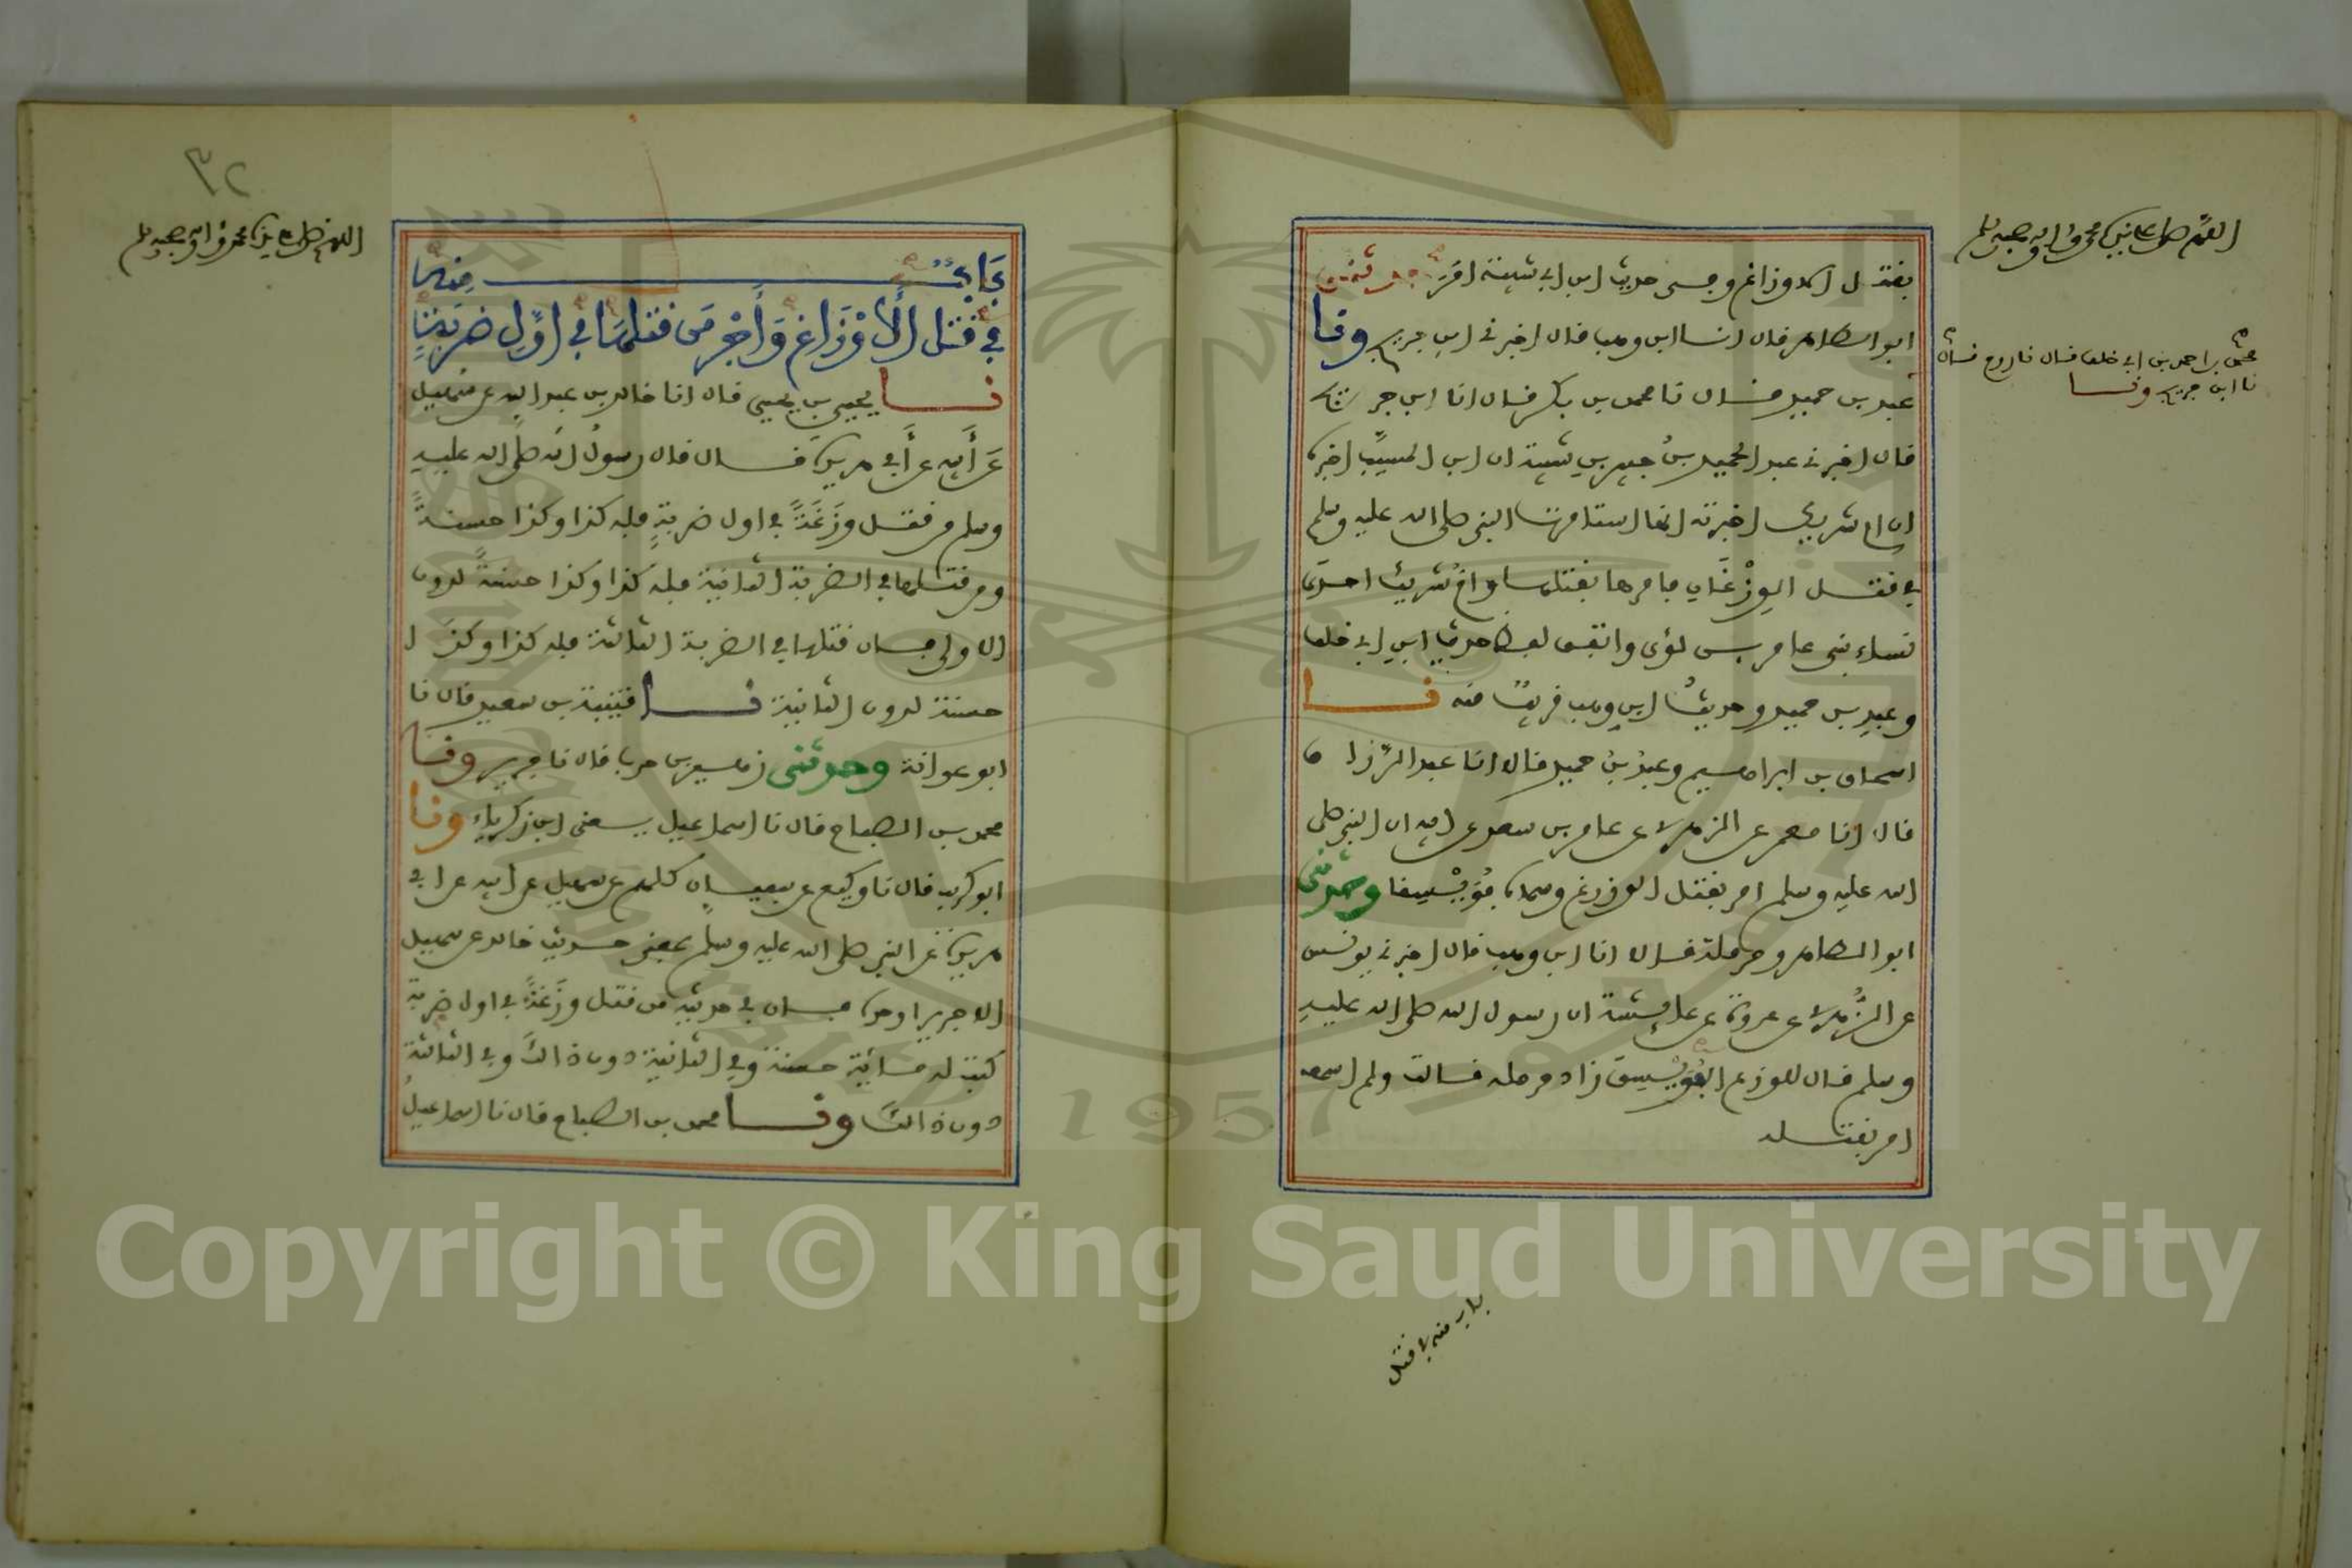 اللهم صل على نبيك محمد واله وصحبه وسلم
بقتل الاوزاغ وفى حديث ابن ابى شيبة امر وحدثنى
ابو الطاهر قال انا ابن وهب قال اخبرنى ابن جريج ونا
محمد بن احمد بن ابى خلف قال نا روح قال
نا ابن جريج ونا
عبد بن حميد قال نا محمد بن بكر قال انا ابن جريج
قال اخبرنى عبد الحميد بن جبير بن شيبة ان ابن المسيب اخبره
ان ام شريك اخبرته انها استامرت النبى صلى الله عليه وسلم
في قتل الوزغان فامرها بقتلها وام شريك احدى
نساء بنى عامر بن لؤى واتفق لفظ حديث ابن ابى خلف
وعبد بن حميد وحديث ابن وهب قريب منه نا
اسحاق بن ابراهيم وعبد بن حميد قالا انا عبد الرزاق
قال انا معمر عن الزهرى عن عامر بن سعد عن ابيه ان النبى صلى
الله عليه وسلم امر بقتل الوزغ وسماه فويسقا وحدثنى
ابو الطاهر وحرملة قالا انا ابن وهب قال اخبرنى يونس
عن الزهرى عن عروة عن عائشة ان رسول الله صلى الله عليه
وسلم قال للوزغ الفويسق زاد حرملة قالت ولم اسمعه
امر بقتله
باب منه في قتل
٣٢
اللهم صل على نبيك محمد واله وصحبه وسلم
باب منه
في قتل الاوزاغ واجر من قتلها في اول ضربة
نا يحيى بن يحيى قال انا خالد بن عبد الله عن سهيل
عن أبيه عن أبي هريرة قال قال رسول الله صلى الله عليه
وسلم من قتل وزغة في اول ضربة فله كذا وكذا حسنة
ومن قتلها في الضربة الثانية فله كذا وكذا حسنة لدون
الاولى فان قتلها في الضربة الثالثة فله كذا وكذا
حسنة لدون الثانية نا قتيبة بن سعيد قال نا
ابو عوانة وحدثنى زهير بن حرب قال نا جرير ونا
محمد بن الصباح قال نا اسماعيل يعنى ابن زكرياء ونا
ابو كريب قال نا وكيع عن سفيان كلهم عن سهيل عن ابيه عن ابي
هريرة عن النبى صلى الله عليه وسلم بمعنى حديث خالد عن سهيل
الا جريرا وحده فان في حديثه من قتل وزغة في اول ضربة
كتبت له مائة حسنة وفي الثانية دون ذالك وفي الثالثة
دون ذالك ونا محمد بن الصباح قال نا اسماعيل
1957
Copyright © King Saud University